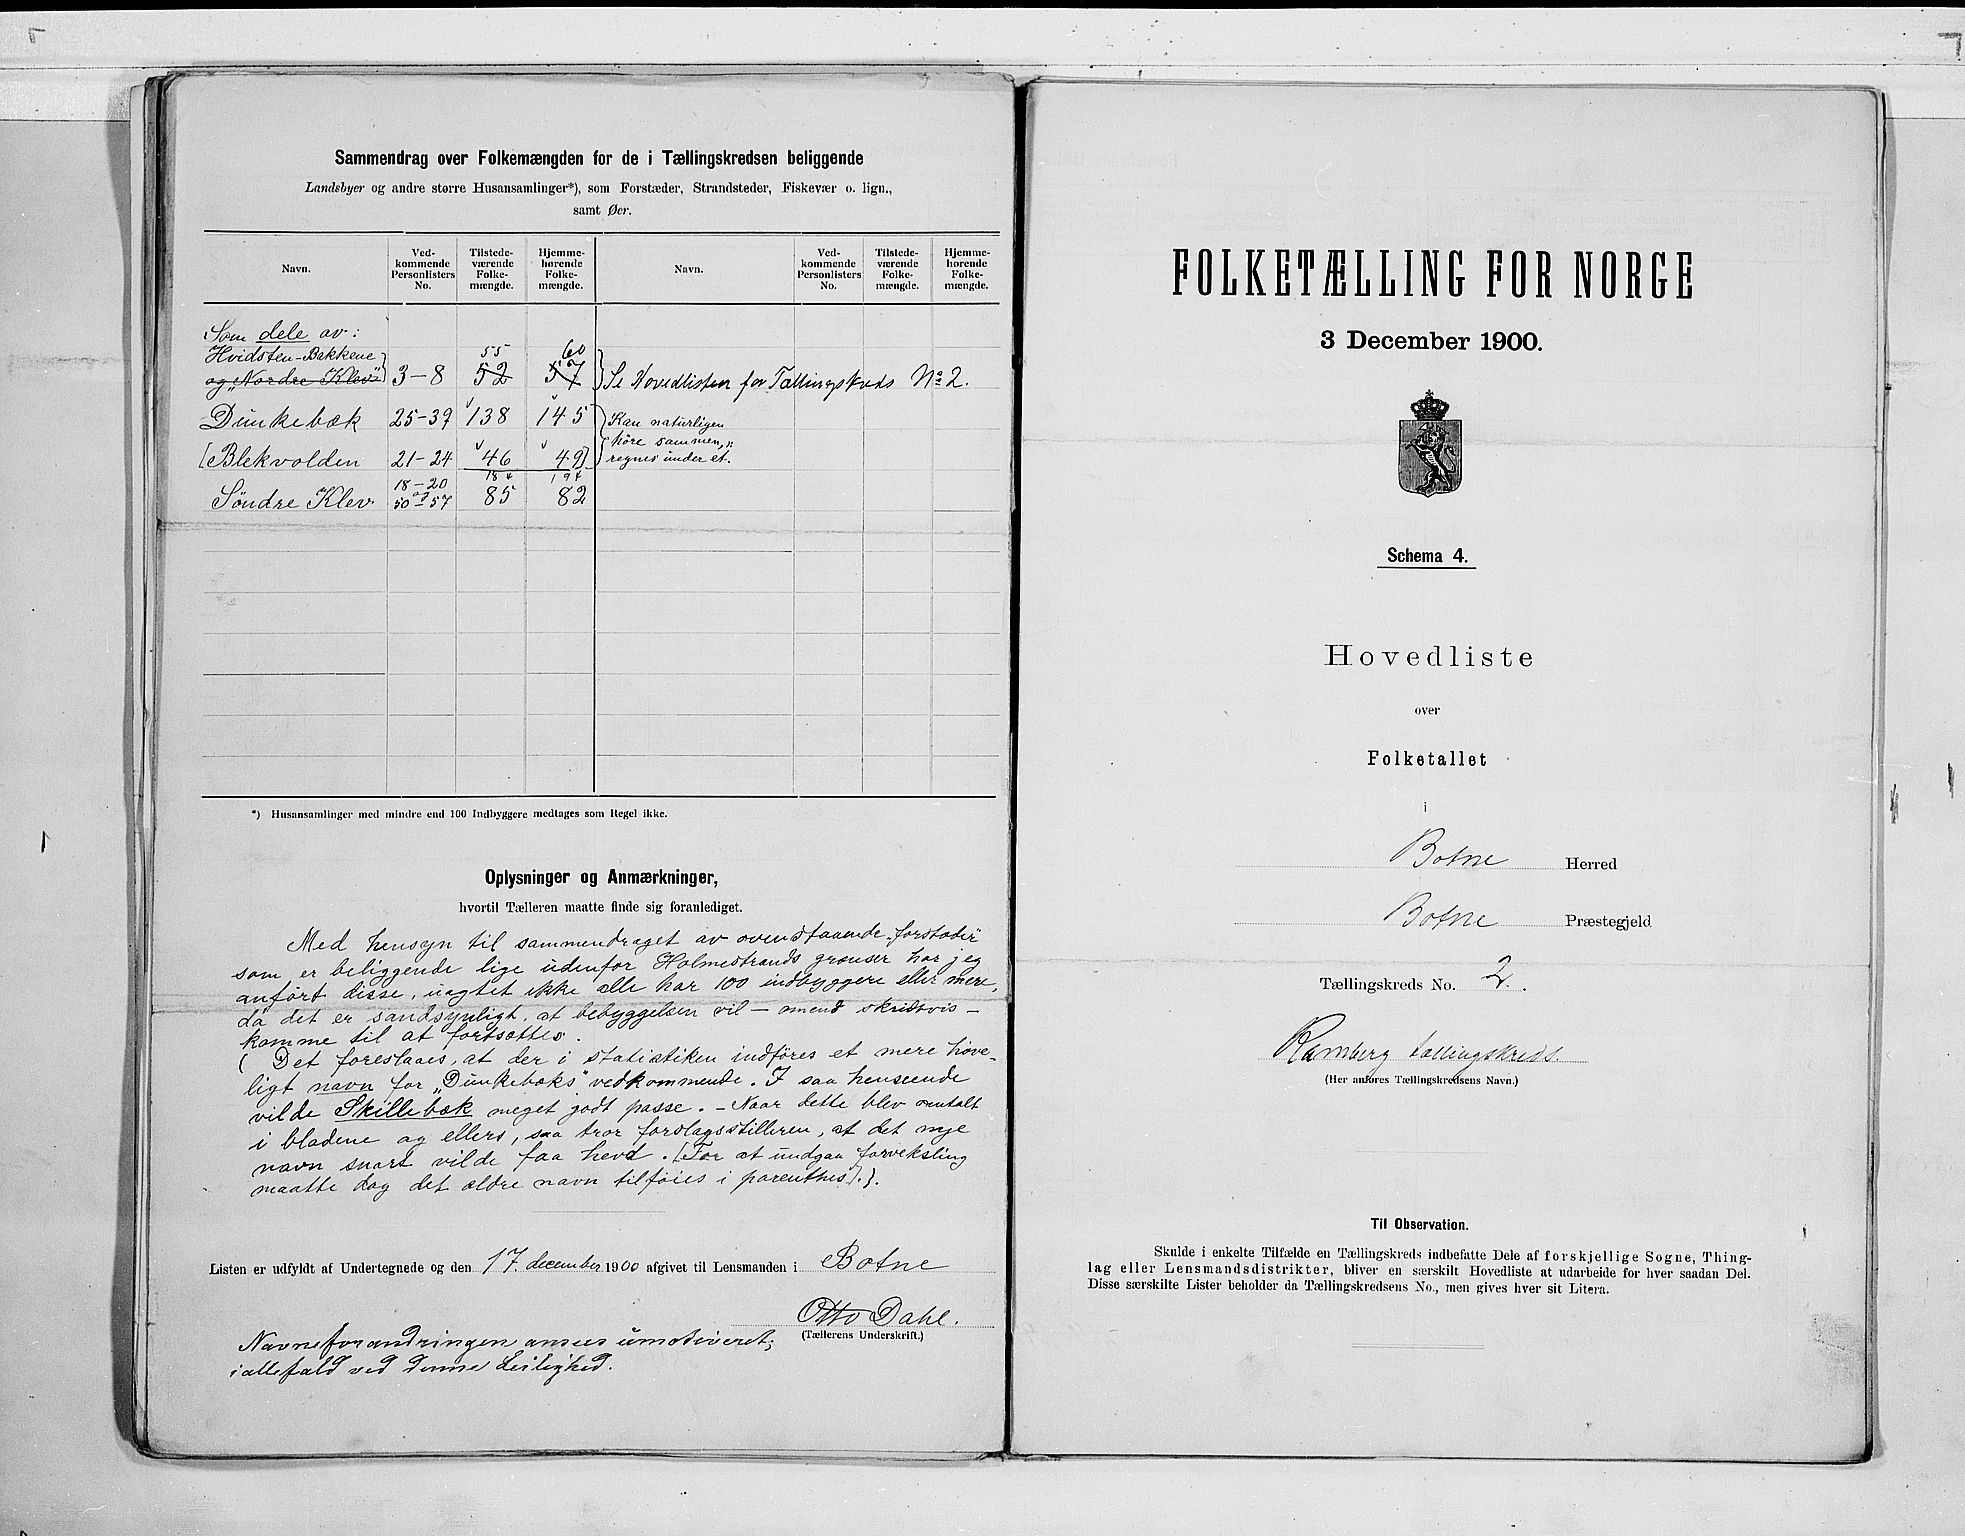 Sammendrag over Folkemængden for de i Tællingskredsen beliggende
Landsbyer og andre større Husansamlinger*), som Forstæder, Strandsteder, Fiskevær o. lign.,
samt Øer.
Navn. Ved-kommende Personlisters No. Tilstede-værende Folke-mængde. Hjemme-hørende Folke-mængde. Navn. Ved-kommende Personlisters No. Tilstede-værende Folke-mængde. Hjemme-hørende Folke-mængde.
Som dele av:
Hvidsten-Bakkene 55 60
og „Nordre Klev" 3-8 52 57 Se Hovedlisten for Tællingskreds No 2.
Dunkebæk 25-39 138 145 Kan naturligen
høre sammen,
[Blekvolden 21-24 46 49] regnes under et.
18-20 184 194
Søndre Klev. og 50-57 85 82
*) Husansamlinger med mindre end 100 Indbyggere medtages som Regel ikke.
Oplysninger og Anmærkninger,
hvortil Tælleren maatte finde sig foranlediget.
Med hensyn til sammendraget av ovenstaaende „forstæder"
som er beliggende lige udenfor Holmestrands grænser har jeg
anført disse, uagtet ikke alle har 100 indbyggere eller mere,
da det er sandsynligt, at bebyggelsen vil – omend skridtvis –
komme til at fortsættes.
( Det foreslaaes, at der i statistiken indføres et mere høve-
ligt navn for „Dunkebæks" vedkommende. I saa henseende
vilde Skillebæk meget godt passe. – Naar dette blev omtalt
i bladene og ellers, saa tror forslagsstilleren, at det nye
navn snart vilde faa hevd. [For at undgaa forveksling
maatte dog det ældre navn tilføies i parenthes].).
Listen er udfyldt af Undertegnede og den 17. december 1900 afgivet til Lensmanden i Botne
Otto Dahl.
(Tællerens Underskrift.)
Navneforandringen ansees umotiveret;
i allefald ved denne Leilighed.
FOLKETÆLLING FOR NORGE
3 December 1900.
Schema 4.
Hovedliste
over
Folketallet
i
Botne Herred
Botne Præstegjeld
Tællingskreds No. 2.
Ramberg tællingskreds.
(Her anføres Tællingskredsens Navn.)
Til Observation.
Skulde i enkelte Tilfælde en Tællingskreds indbefatte Dele af forskjellige Sogne, Thing-
lag eller Lensmandsdistrikter, bliver en særskilt Hovedliste at udarbeide for hver saadan Del.
Disse særskilte Lister beholder da Tællingskredsens No., men gives hver sit Litera.